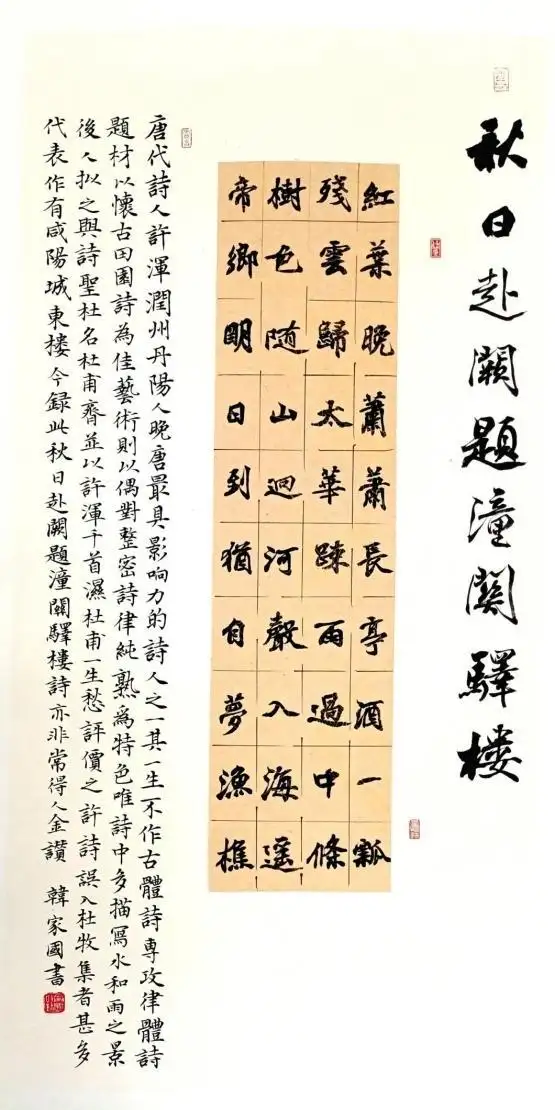 秋日赴闕題潼関驛樓
紅葉晚蕭蕭長亭酒一瓢
殘雲歸太華踈雨過中條
樹色随山迥河聲入海遥
帝鄉明日到猶自夢漁樵
唐代詩人許渾潤州丹陽人晚唐最具影响力的詩人之一其一生不作古體詩専攻律體詩
題材以懷古田園詩為佳藝術則以偶對整密詩律純熟為特色唯詩中多描寫水和雨之景
後人拟之與詩聖杜名杜甫齊並以許渾千首濕杜甫一生愁評價之許詩誤入杜牧集者甚多
代表作有咸陽城東楼今録此秋日赴闕題潼關驛樓詩亦非常得人金讚 韓家國書